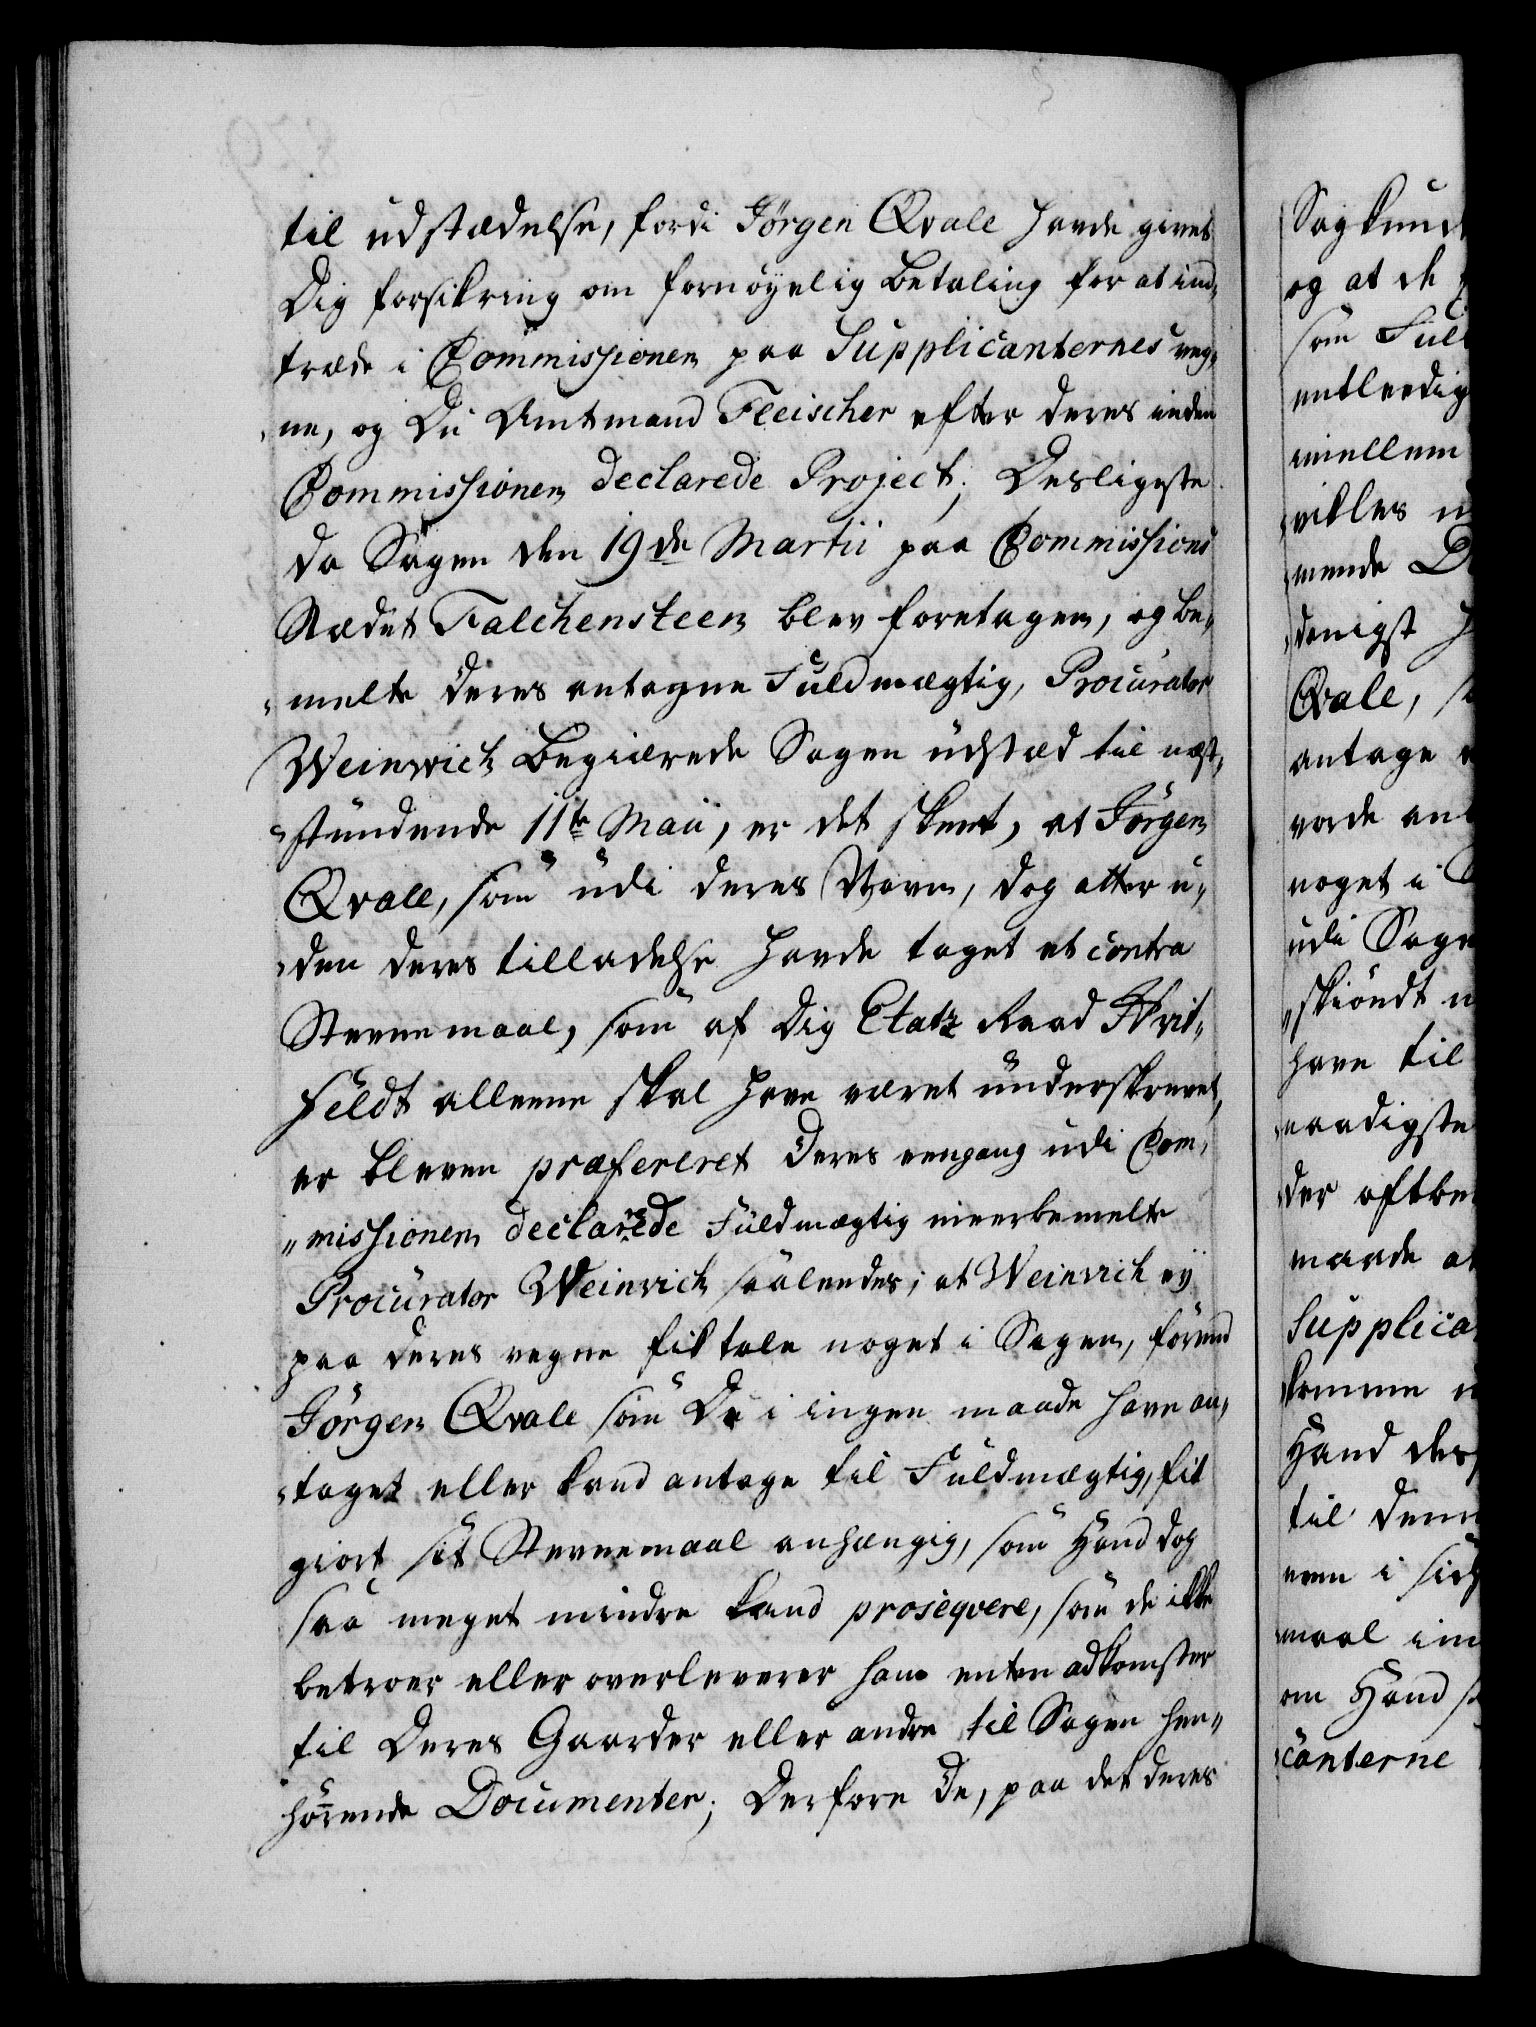 til udstædelse, fordi Jörgen Qvale havde givet
Dig forsikring om fornöyelig betaling for at ind„
træde i Commissionen paa Supplicanternes veg„
„ne, og Du Amtmand Fleischer efter deres inden
Commissionen declarede Project; Desligeste
da Sagen den 19de Martii paa Commissions
Stædet Falchensteen blev foretagen, og be„
„melte deres antagne Fuldmægtig, Procurator
Weinwich begiærede Sagen udstæd til næst„
„stundende 11te Maii, er det skeet, at Jörgen
Qvale, som udi deres Navn, dog atter u„
„den deres tilladelse havde taget et contra
Stevnemaal, som af Dig Etatz Raad Hvit„
feldt alleene skal have været underskrevet,
er bleven præfereret deres eengang udi Com„
„missionen declarerede Fuldmægtig meerbemelte
Procurator Weinwich saaledes, at Weinwich ey
paa deres vegne fik tale noget i Sagen, förend
Jörgen Qvale som De i ingen maade have an„
„taget eller kand antage til Fuldmægtig, fik
giort sit Stevnemaal anhængig, som Hand dog
saa meget mindre kand proseqvere, som de ikke
betroer eller overleverer ham enten adkomster
til Deres Gaarder eller andre til Sagen hen„
hörende Documenter; Derfore De, paa det deres
Sagkund
og at de
som Ful
entledig
imellem
vikles
mende
denigst
Qvale,
antage
vorde ant
noget i
udi Sag
„skiöndt
have til
naadigste
der oftbe
maade at
Supplica
komme
Hand des
til denn
een i
maal
om Hand
canterne